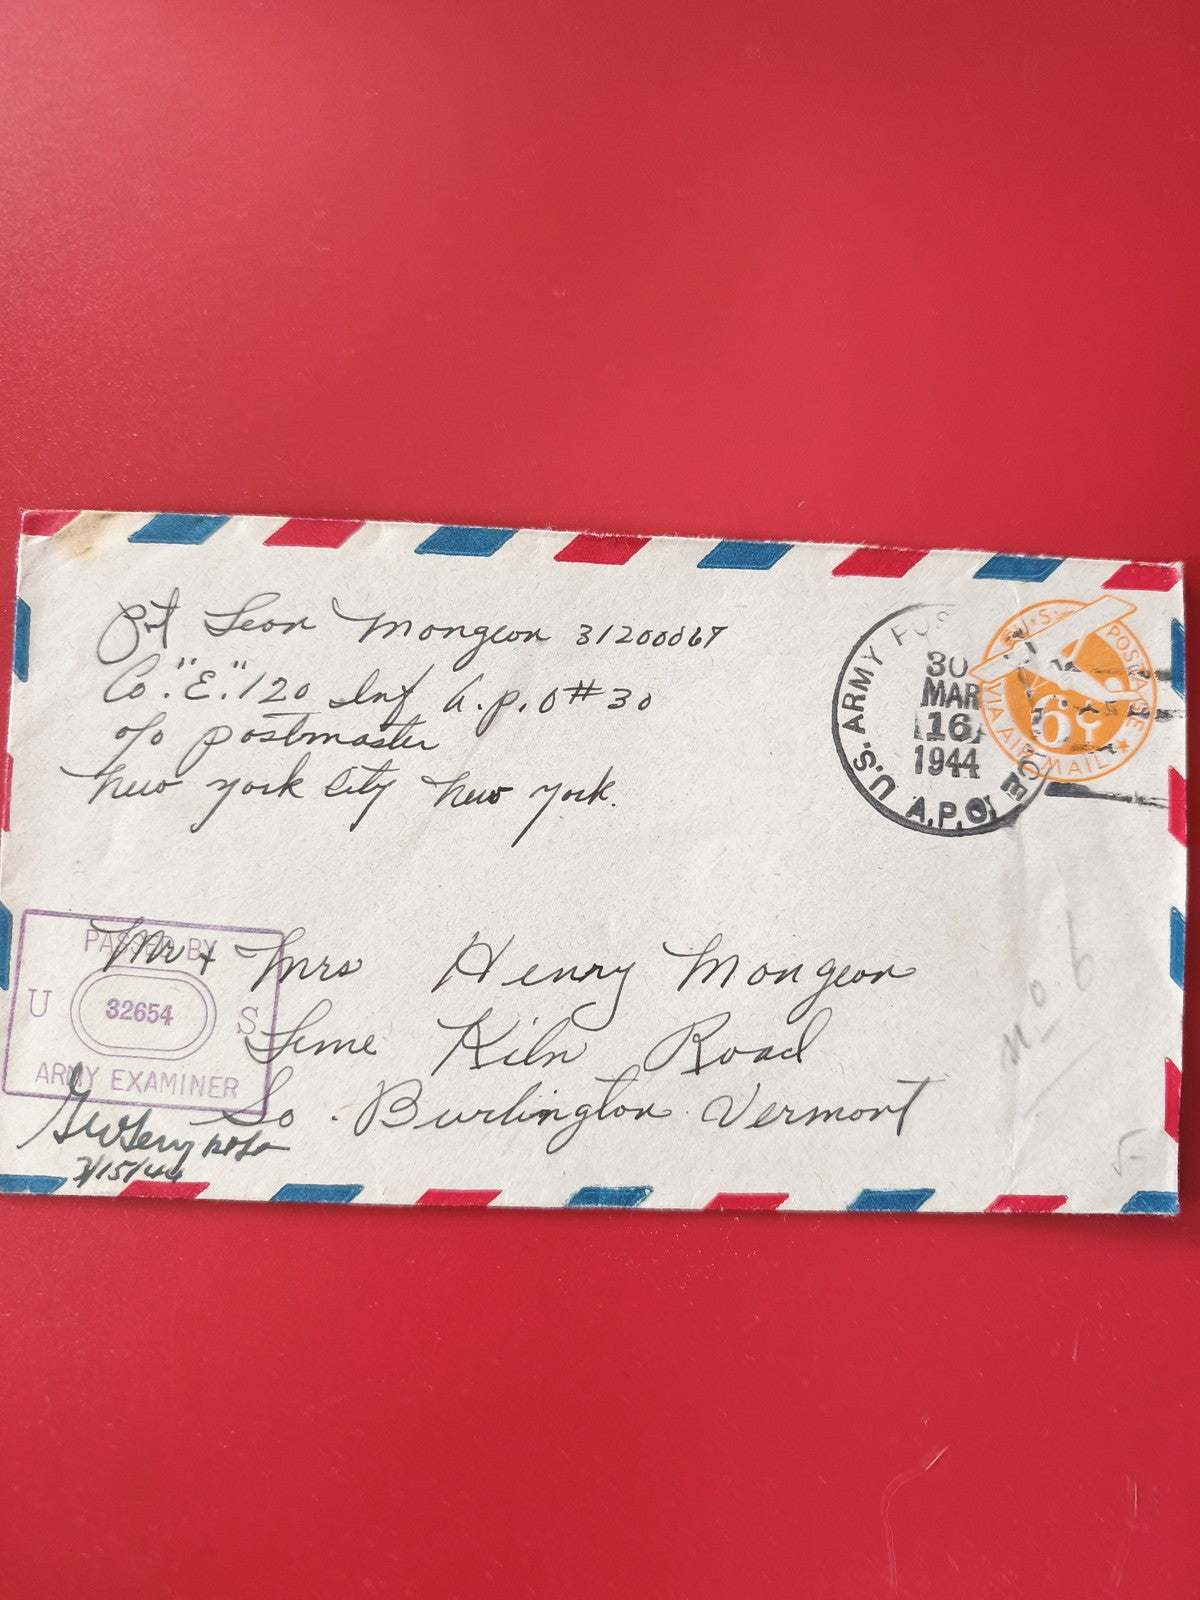 Pvt Leon Mongeon 31200067
Co. "E." 120 Inf A.P.O #30
c/o postmaster
New York City New York.
U.S. ARMY POS CE
30
MAR
16
1944
A.P.O.
U.S. POSTAGE
6¢
VIA AIR MAIL
PASSED BY
U 32654 S
ARMY EXAMINER
Mr + Mrs Henry Mongeon
Lime Kiln Road
So. Burlington Vermont
3/15/44